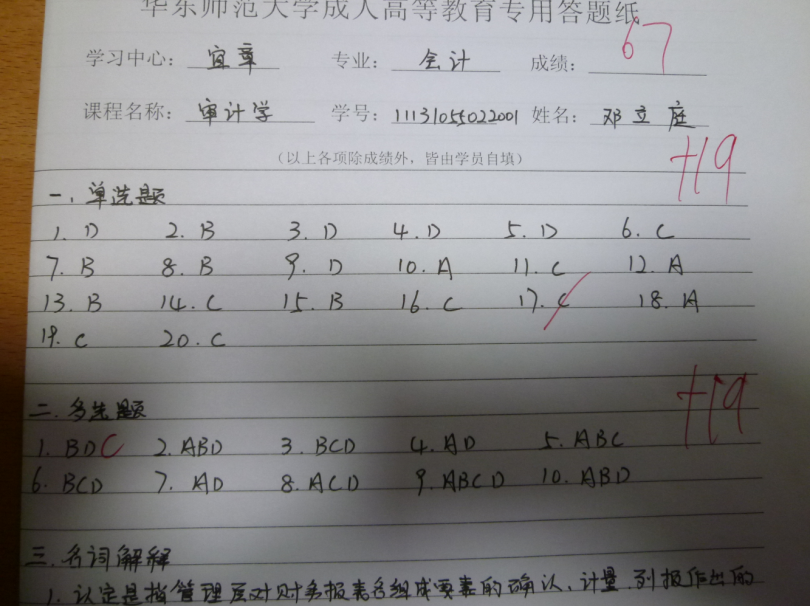 华东师范大学成人高等教育专用答题纸
学习中心: 宜章 专业: 会计 成绩: 67
课程名称: 审计学 学号: 11131055022001 姓名: 邓立庭
(以上各项除成绩外,皆由学员自填)
+19
一、单选题
1. D 2. B 3. D 4. D 5. D 6. C
7. B 8. B 9. D 10. A 11. C 12. A
13. B 14. C 15. B 16. C 17. C 18. A
19. C 20. C
+19
二.多选题
1. BDC 2. ABD 3. BCD 4. AD 5. ABC
6. BCD 7. AD 8. ACD 9. ABCD 10. ABD
三.名词解释
1. 认定是指管理层对财务报表各组成要素的确认、计量、列报作出的